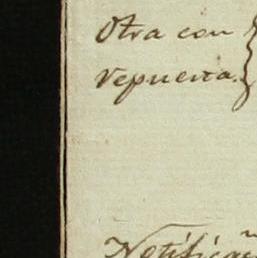 Otra con
repuesta.
Notificaⁿ